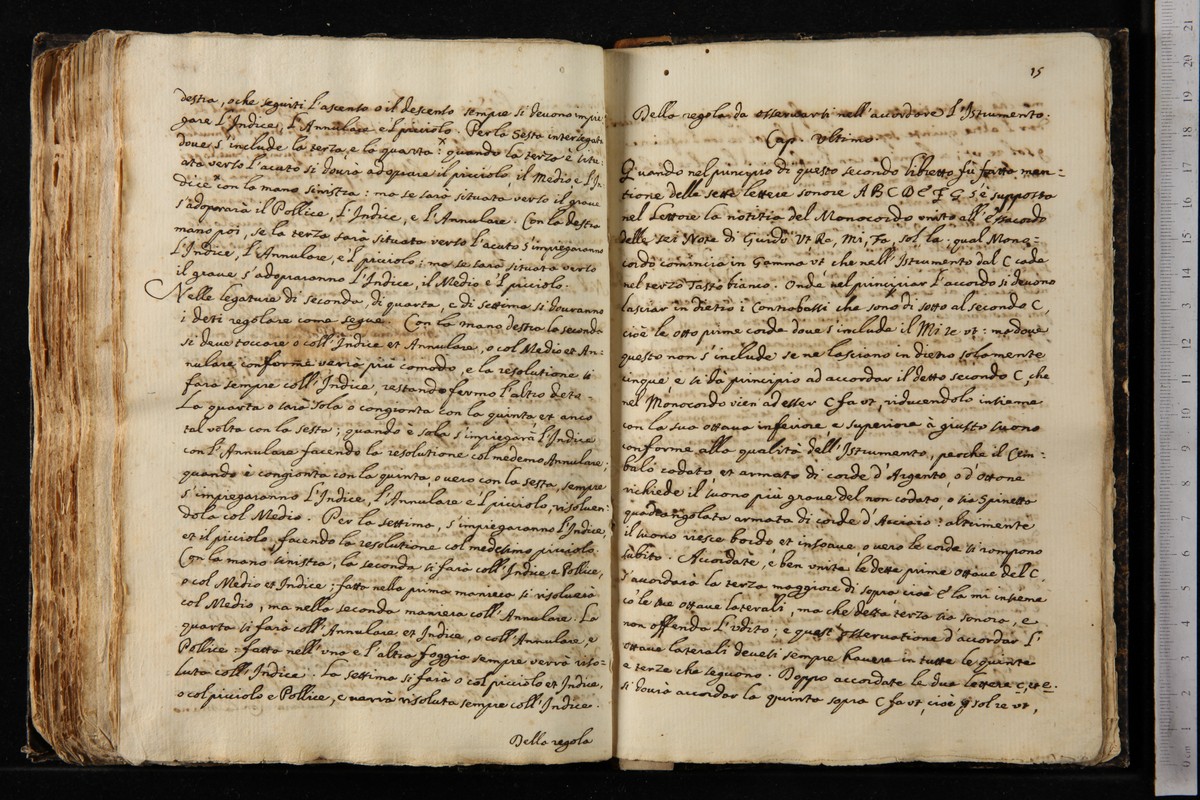 destra, o che seguiti l'ascenso o il descenso sempre si devono impie
gare l'Indice, l'Annulare e 'l piciolo. Per la Sesta inter legati
dove s'include la terza, e la quarta: quando la terza è situ-
ata verso l'acuto si dourà adoprare il piciolo, il Medio e l'In-
dice con la mano sinistra: ma se sarà situata verso il grave
s'adoperarà il Pollice, l'Indice, e l'Annulare. Con la destra
mano poi, se la terza sarà situata verso l'acuto s'impiegaranno
l'Indice, l'Annulare, e 'l piciolo; ma se sarà situata verso
il grave s'adopraranno l'Indice, il Medio e 'l piciolo.
Nelle legature di seconda, di quarta, e di settima si douranno
i deti regolare come segue. Con la mano destra la seconda
si deve toccare o coll'Indice et Annulare, o col Medio et An-
nulare conforme verrà più comodo, e la resolutione si
farà sempre coll'Indice, restando fermo l'altro deto.
La quarta o sarà sola o congionta con la quinta, et anco
tal volta con la sesta; quando è sola s'impiegarà l'Indice
con l'Annulare facendo la resolutione col medemo Annulare;
quando è congionta con la quinta, o vero con la sesta, sempre
s'impiegaranno l'Indice, l'Annulare e 'l piciolo, risoluen-
dola col Medio. Per la settima, s'impiegaranno l'Indice,
et il piciolo, facendo la resolutione col medesimo piciolo.
Con la mano sinistra, la seconda si farà coll'Indice, e Pollice,
o col Medio et Indice: fatta nella prima maniera si risoluerà
col Medio, ma nella seconda maniera coll'Annulare. La
quarta si farà coll'Annulare, et Indice, o coll'Annulare, e
Pollice: fatta nell'una e l'altra foggia sempre verrà riso-
luta coll'Indice. La settima si farà o col piciolo et Indice,
o col piciolo e Pollice, e uerrà risoluta sempre coll'Indice.
Della regola
15
Della regola da osservarsi nell'accordare l'Istrumento.
Cap. Ultimo
Quando nel principio di questo secondo libretto fù fatta men-
tione delle sette lettere sonore A B C D E F G s'è supposta
nel Lettore la notitia del Monocordo unito all'essacordo
delle sei Note di Guido Ut Re, Mi, Fa, Sol la: qual Mono-
cordo comincia in Gamma ut che nell'Istrumento dal C cade
nel terzo Tasto bianco. Onde nel principiar l'accordo si devono
lasciar in dietro i Contrabassi che sono di sotto al secondo C,
cioè le otto prime corde dove s'include il Mi re ut: ma dove
questo non s'include se ne lasciano in dietro solamente
cinque e si dà principio ad accordar il detto secondo C, che
nel Monocordo vien ad esser C fa ut, riducendolo insieme
con la sua ottava inferiore, e superiore à giusto suono
conforme alla qualità dell'Istrumento, perche il Cem-
balo codato, et armato di corde d'Argento, o d'ottone
richiede il suono più grave del non codato, o sia Spinetta
quadrangolata armata di corde d'Acciaio: altrimente
il suono riesce bordo et insoave o vero le corde si rompono
subito. Accordate, e ben unite le dette prime ottave del C.
s'accordarà la terza maggiore di sopra cioè E la mi insieme
cò le sue ottave laterali, ma che detta terza sia sonora, e
non offenda l'udito; e quest'osservatione d'accordar l'
ottave laterali devesi sempre havere in tutte le quinte
e terze che seguono. Doppo accordate le due lettere c, et e.
si dourà accordar la quinta sopra C fa ut, cioè g sol re ut,